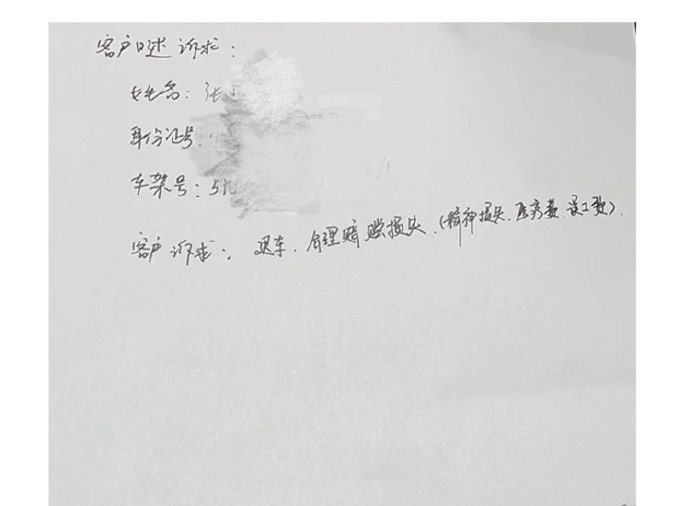 客户口述诉求：
姓名：张
身份证号：
车架号：5
客户诉求：退车、合理赔赔损失（精神损失、医疗费、误工费）.